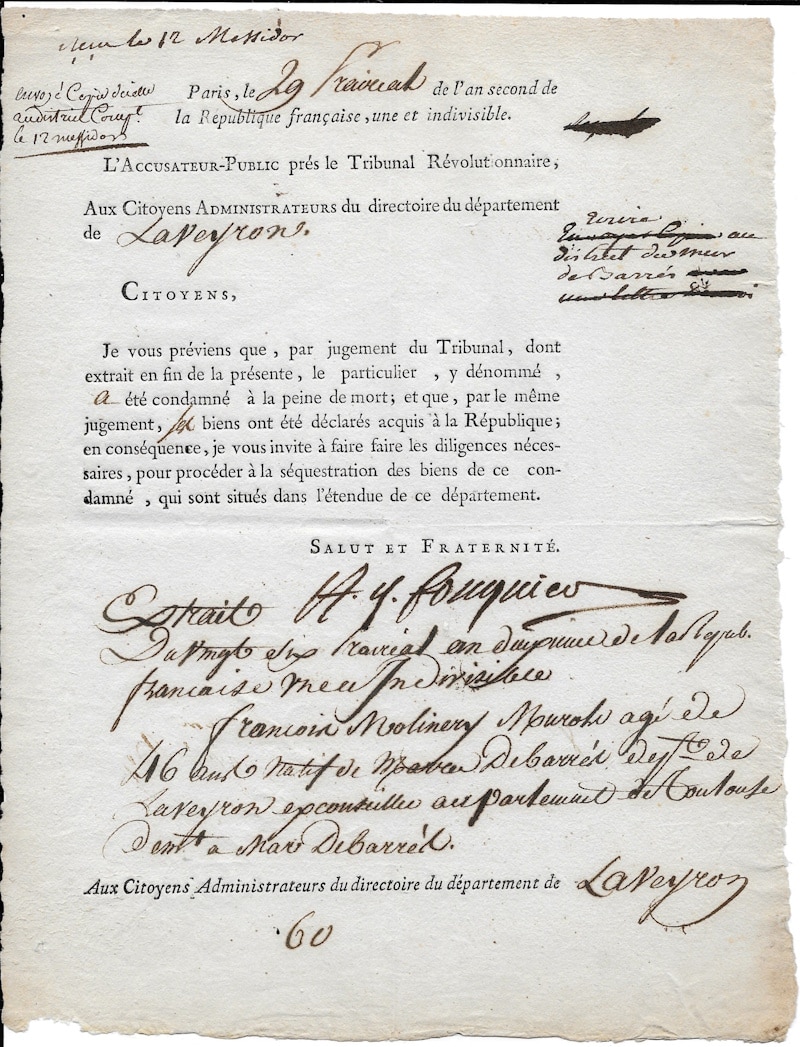 reçu le 12 Messidor
envoyé Copie d'icelle
au district Compt
le 12 messidor
Paris, le 29 Prairial de l'an second de
la République française, une et indivisible.
L'ACCUSATEUR-PUBLIC prés le Tribunal Révolutionnaire,
Aux Citoyens ADMINISTRATEURS du directoire du département
de LaVeyron.
Ecrire
au
district du mur
de Barrés
CITOYENS,
Je vous préviens que, par jugement du Tribunal, dont
extrait en fin de la présente, le particulier , y dénommé ,
a été condamné à la peine de mort; et que, par le même
jugement, ses biens ont été déclarés acquis à la République;
en conséquence, je vous invite à faire faire les diligences néces-
saires, pour procéder à la séquestration des biens de ce con-
damné , qui sont situés dans l'étendue de ce département.
SALUT ET FRATERNITÉ.
Extrait A. q. fouquier
Du vingt six Prairial an deuxieme de la Repub.
francaise Une et Indivisible
francois Molinery Murols agé de
46 ans natif de DeBarrés dept. de
Laveyron exconseiller au parlement de Toulouse
demt a Mur DeBarrés.
Aux Citoyens Administrateurs du directoire du département de LaVeyron
60